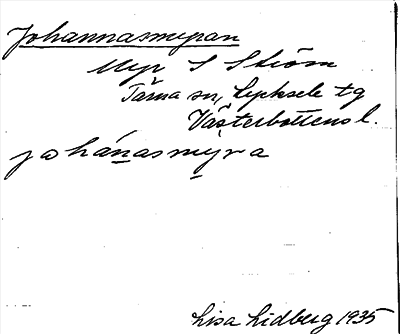 Johannasmyran
Myr S Ström
Tärna sn, Lycksele tg
Västerbottens l.
johánasmýra
Lisa Lidberg 1935